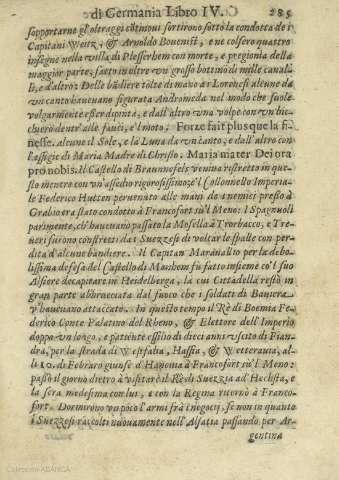 di Germania Libro IV. 285
sopportarne gl'oltraggi côtinoui sortirono sotto la condotta de i
Capitani Wentz, & Arnoldo Bouenist, e ne colsero quattro
insegne nella villa di Plesserhem con morte, e pregionia della
maggior parte; fatto in oltre vn grosso bottino di mille canal-
li, e d'altro: Delle bãdiere tolte di mano a i Lorenesi alcune da
vn canto haueuano figurata Andromeda nel modo che suole
volgarmente esser dipinta, e dall'altro vna volpe con vn bic-
chiero dentr'alle fauci, e'l moto; Forze fait plus que la fi-
nesse. alcune il Sole, e la Luna da vn canto, e dall'altro con
l'effigie di Maria Madre di Christo. Maria mater Dei ora
pro nobis. il Castello di Braunnsels veniua ristretto in que-
sto mentre con vn'assedio rigorosissimo; e'l Collonnello Imperia-
le Federico Hutten peruenuto alle mani de i nemici presso à
Grabio era stato condotto à Francofort sù'l Meno: I Spagnuoli
parimente, ch'haueuano passato la Mosella à Trorbacco, e Tre-
ueri furono constretti dai Suezzesi di voltar le spalle con per-
dita d'alcune bandiere. Il Capitan Maranalto per la debo-
lissima defesa del Castello di Manhem fù fatto insieme co'l suo
Alfiere decapitare in Heidelberga, la cui Cittadella restò in
gran parte abbracciata dal fuoco che i soldati di Bauiera
v'haueuano attaccato. In questo tempo il Rè di Boemia Fe-
derico Conte Palatino del Rheno, & Elettore dell'Imperio
doppo vn longo, e patiente essilio di dieci anni vscito di Fian-
dra, per la strada di Westfalia, Hassia, & Wetterauia, al-
li 10. di Febraro giunse d'Hanouia à Francofort sù'l Meno:
passò il giorno dietro à visitare il Rè di Suezzia ad Hechsta, e
la sera medesima con lui, e con la Regina ritornò à Franco-
fort. Dormirono vn poco l'armi frà i negocij, se non in quanto
i Suezzesi raccolti nuouamente nell'Alsatia passando per Ar-
gentina
Colección ABANCA